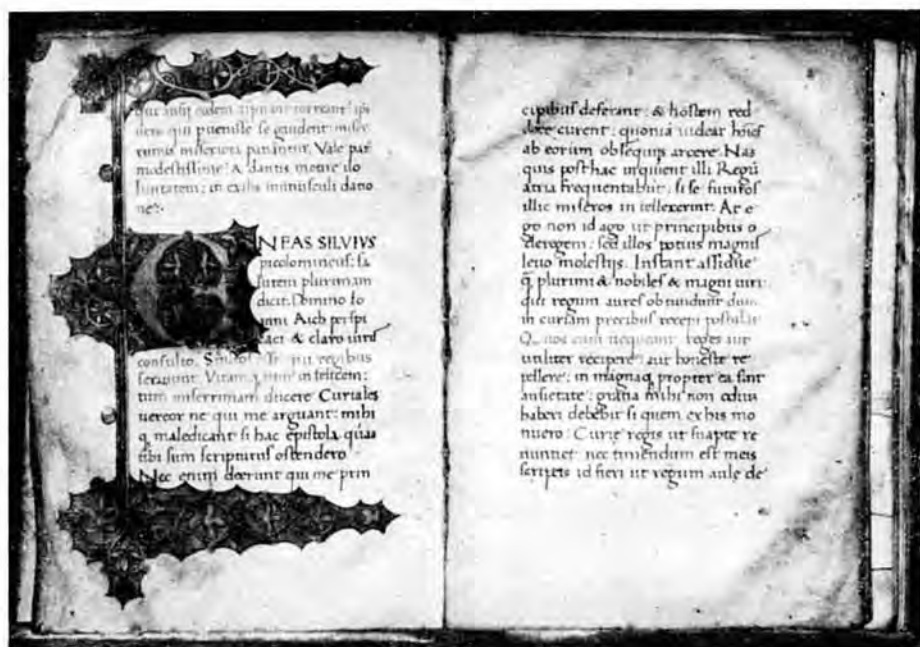 ne:
NEAS SILVIVS
picolomineus: sa
lutem plurimam
dicit. Domino Io
anni Aich perspi
caci & claro iuris
consulto. Stultos
seruiunt. Vitam infelicem:
tum miserrimam ducere Curiales
uereor ne qui me arguant: mihi
q maledicant si hac epistola quas
tibi sum scripturus ostendero
Nec enim deerunt qui me prin
cipibus deferant: & hostem red
dere curent: quoniã uidear hoies
ab eorum obsequijs arcere. Nas
quis posthac inquient illi Regũ
atria frequentabit: si se futuros
illic miseros intellexerint. At e
go non id ago ut principibus o
derogem: sed illos potius magnis
leuo molestijs. Instant assidue
q plurimi & nobiles & magni uiri
qui regum aures obtundunt dum
in curiam precibus recepi postulãt
Q nos cum nequeant reges aut
utiliter recipere: aut honeste re
pellere: in magnaq propter ea sint
ansietate: gratia mihi non odium
haberi debebit si quem ex his mo
nuero: Curie regis ut suapte re
nuntiet nec timendum est meis
scriptis id fieri ut regum aule de